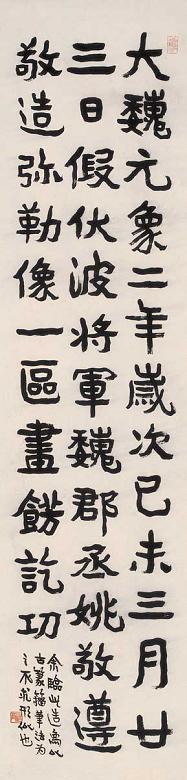 大魏元象二年歲次己未三月廿
三日假伏波将軍魏郡丞姚敬遵
敬造弥勒像一區畫餝訖功
余臨此造像以
古篆籀筆法為
之不求形似也